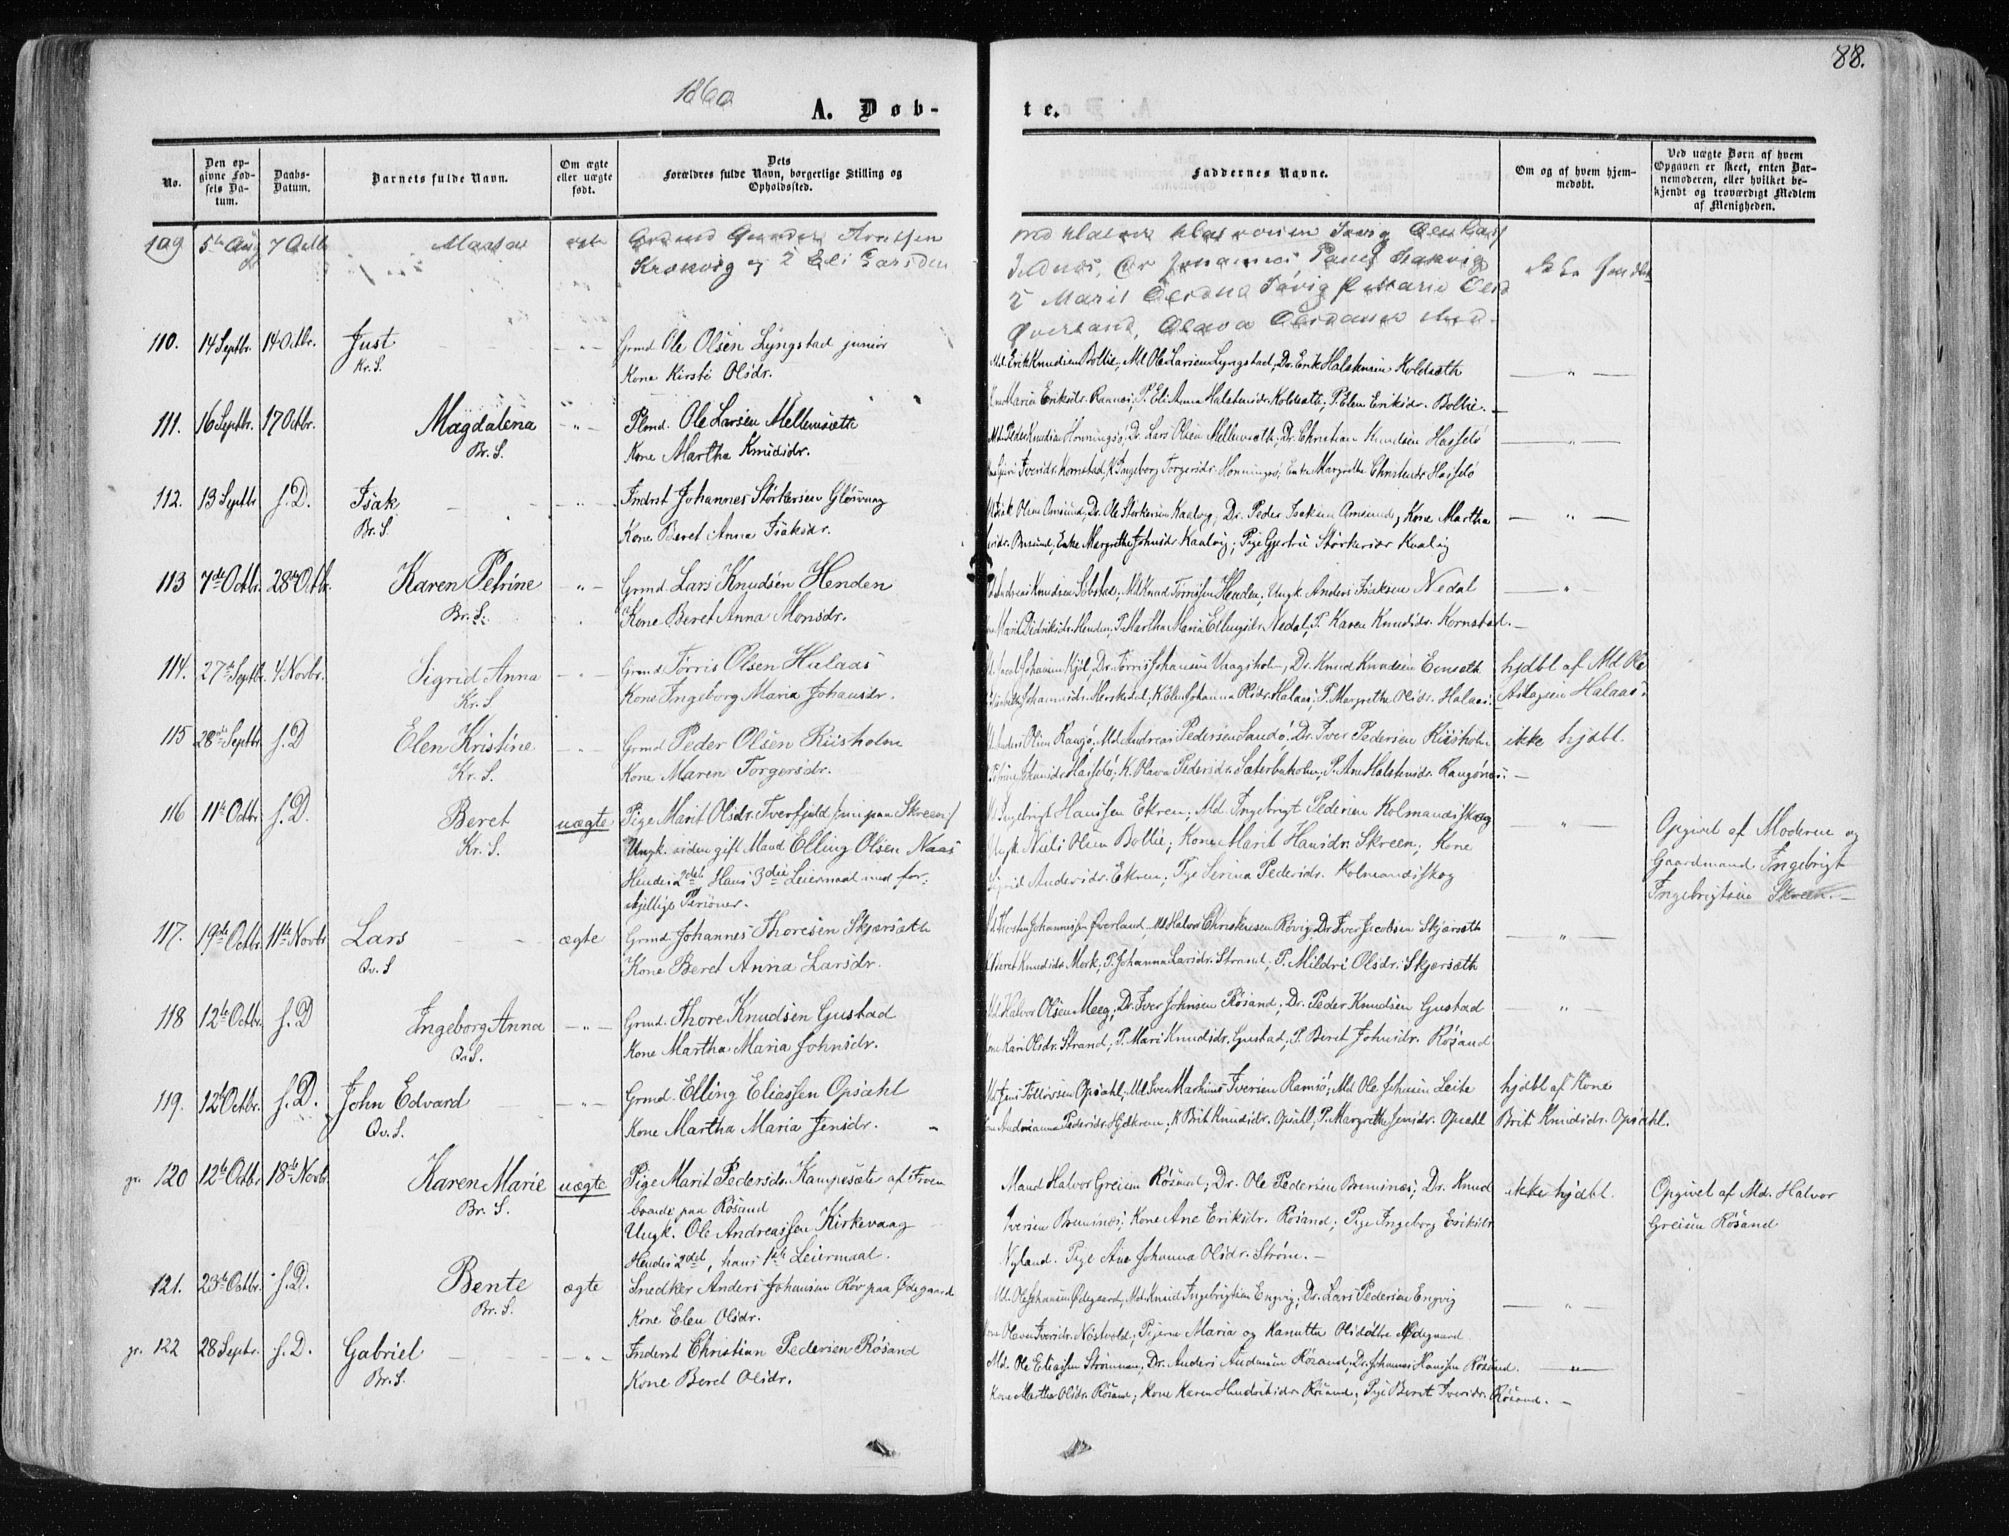 88.
1860
A. Døb-
te.
No.
Den op-
givne Fød-
sels Da-
tum.
Daabs-
Datum.
Barnets fulde Navn.
Om ægte
eller uægte
født.
Dets
Forældres fulde Navn, borgerlige Stilling og
Opholdssted.
Faddernes Navne.
Om og af hvem hjem-
medøbt.
Ved uægte Børn af hvem
Opgaven er skeet, enten Bar-
nemoderen, eller hvilket be-
kjendt og troværdigt Medlem
af Menigheden.
109 5te Aug 7 Octb
110. 14 Septbr. 14 Octbr. Just
Kr. S.
Grmd Ole Olsen Lyngstad junior
Kone Kirsti Olsdr.
Md. Erik Knudsen Bollie, Md Ole Larsen Lyngstad, Dr. Erik Halstensen Koldsæth
Maria Eriksdr. Ranæs; P. Eli Anna Halstensdr. Koldsæth; P. Elen Eriksdr. Bollie.
111. 16 Septbr. 17 Octbr. Magdalena
Br. S.
Plmd. Ole Larsen Mellemsætte
Kone Martha Knudsdr.
Md. Peder Knudsen Honningsø, Dr. Lars Olsen Mellemsæth, Dr. Christian Knudsen Hasselø
Iversdr. Kornstad, K. Ingeborg Torgersdr. Honningsø, Enke Margrethe Hasselø
112. 13 Septbr. s. D. Isak
Br. S.
Inderst Johannes Størkersen Gløsvaag
Kone Beret Anna Isaksdr.
Olsen Omsund, Dr. Ole Størkersen Kaalvig, Dr. Peder Isaksen Omsund, Kone Martha
Enke Margrethe Johnsdr. Kaalvig; Pige Gjertru Størkersdr Kaalvig
113 7de Octbr. 28de Octbr. Karen Petrine
Br. S.
Grmd Lars Knudsen Henden
Kone Beret Anna Monsdr.
Knudsen Solstad; Md Knud Torrissen Henden, Ungk. Anders Isaksen Nedal
Marit Didriksdr. Henden, P. Martha Maria Ellingsdr. Nedal, P. Karen Knudsdr. Kornstad.
114. 27de Septbr. 4 Novbr. Sigrid Anna
Kr. S
Grmd Torris Olsen Halaas
Kone Ingeborg Maria Johansdr.
Johansen Kjøl, Dr. Torris Johansen Vaagsholm, Dr. Knud Knudsen Eenseth
Johanna Olsdr. Halaas, P. Margrethe Olsdr. Halaas.
hjdbt af Md Ole
Aslagsen Halaas.
115 28de Septbr. s. D Elen Kristine
Kr. S.
Grmd Peder Olsen Riisholm
Kone Maren Torgersdr.
Anders Olsen Rangø, Md Andreas Pedersen Sandø, Dr. Iver Pedersen Riisholm
Hasselø, K. Olava Pedersdr. Sæterbøholm, P. Ane Halstensdr. Rangønes.
ikke hjdbt.
116 11te Octbr. s. D. Beret
Kr. S.
uægte
Pige Marit Olsdr. Tverfjeld paa Skreen
Ungk. siden gift Mand Elling Olsen Naas
Hendes 2det, Hans 3die Leiermaal med for-
skjellige Personer.
Ingebrigt Hanssen Ekren; Md Ingebrigt Pedersen Kolmandskog
Ungk. Niels Olsen Bollie; Kone Marit Hansdr. Skreen, Kone
Sigrid Andersdr. Ekren, Pige Serina Pedersdr. Kolmandskog
Opgivet af Moderen og
Gaardmand Ingebrigt
Ingebrigtsen Skreen.
117. 19de Octbr. 11te Novbr. Lars
Qv. S
ægte
Grmd Johannes Thoresen Skjærsæth
Kone Beret Anna Larsdr.
Johannessen Øverland, Md Halvor Christensen Røvig, Dr. Iver Jacobsen Skjærsæth
Beret Knudsdr. Mork; P. Johanna Larsdr. Strand, P. Mildri Olsdr. Skjærsæth
118 12te Octbr. s. D Ingeborg Anna
Qv. S.
Grmd. Thore Knudsen Gustad
Kone Martha Maria Johnsdr.
Md. Halvor Olsen Meeg; Dr. Iver Johnsen Røsand, Dr. Peder Knudsen Gustad
Kone Kari Olsdr. Strand; P. Mari Knudsdr. Gustad, P. Beret Johnsdr. Røsand
119. 12te Octbr. s. D. John Edvard
Qv. S.
Grmd. Elling Eliassen Opsahl
Kone Martha Maria Jensdr.
Opsahl, Md Iver Markus Iversen Ramsø; Md Ole Johnsen Leite
Pedersdr. K Brit Knudsdr. Opsahl, P. Margrethe Jensdr. Opsahl
hjdbt af Kone
Brit Knudsdr. Opsahl.
gr. 120 12te Octbr. 18de Novbr. Karen Marie
Br. S.
uægte
Pige Marit Pedersdr. Kampesæter af Froen
boende paa Røsand
Ungk. Ole Andreassen Kirkevaag
Hendes 2det, hans 1ste Leiermaal.
Mand Halvor Greisen Røsand; Dr. Ole Pedersen Bremnæs; Dr. Knud
Iversen Bremnæs; Kone Ane Eriksdr. Røsand; Pige Ingeborg Eriksdr
Nyland. Pige Ane Johanna Olsdr. Strøm.
ikke hjdbt.
Opgivet af Md. Halvor
Greisen Røsand
121. 23de Octbr. s. D. Bente
Br. S.
ægte
Snedker Anders Johansen Røv paa Ødegaard
Kone Elen Olsdr.
Md. Ole Johansen Ødegaard, Md. Knud Ingebrigtsen Engvig; Dr. Lars Pedersen Engvig
Iversdr. Nøstvold, Pigerne Maria og Kanutta Olsdøttre Ødegaard
gr. 122 28 Septbr. s. D. Gabriel
Br. S.
Inderst Christian Pedersen Røsand
Kone Beret Olsdr.
Md. Ole Eliassen Strømmen; Dr. Anders Andersen Røsand, Dr. Johannes Hanssen Røsand.
Kone Martha Olsdr. Røsand; Kone Karen Hendriksdr. Røsand, Pige Beret Iversdr. Røsand.